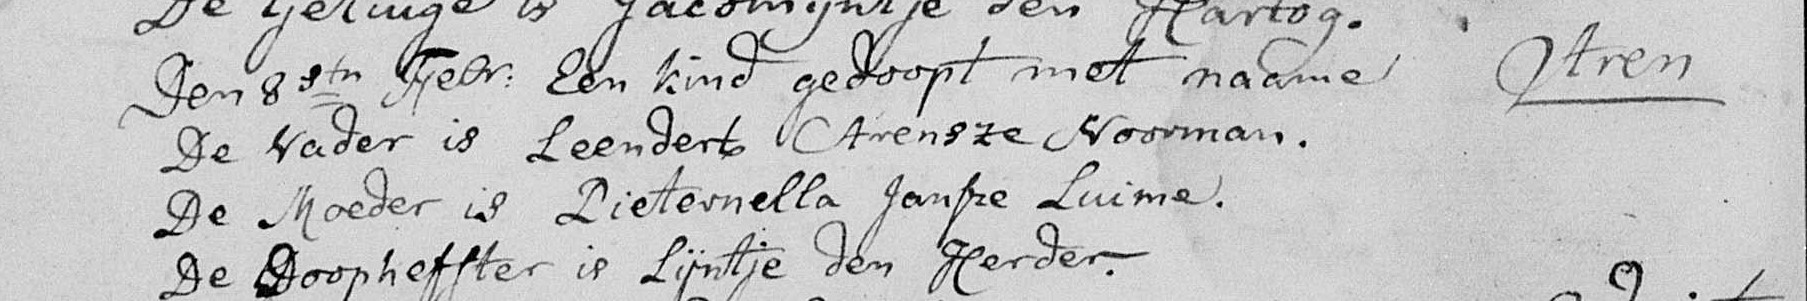 De Getuige is Jacomijntje den Hartog.
Den 8stn Febr: Een kind gedoopt met naame Aren
De Vader is Leendert Arensze Noorman.
De Moeder is Pieternella Janse Luime.
De Doopheffster is Lijntje den Herder.